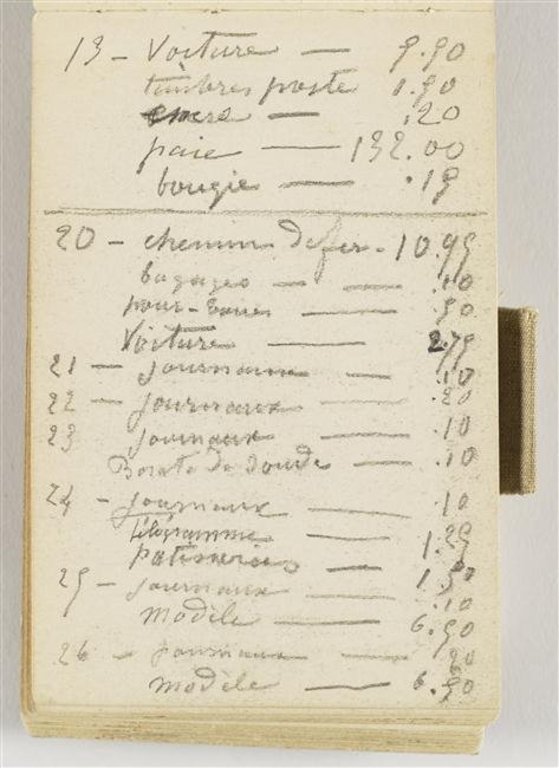 13 - Voiture — 5.50
timbres poste 1.50
encre — .20
paie — 132.00
bougie — .15
20 - chemin de fer - 10.95
bagages — .10
pour-boires — .50
Voiture — 2.75
21 - journaux — .10
22 - journaux — .20
23 journaux — .10
Borate de soude — .10
24 - journaux — .10
télégramme — 1.25
patisseries — 1.50
25 - journaux — .10
Modèle — 6.50
26 - journaux — .20
Modèle — 6.50